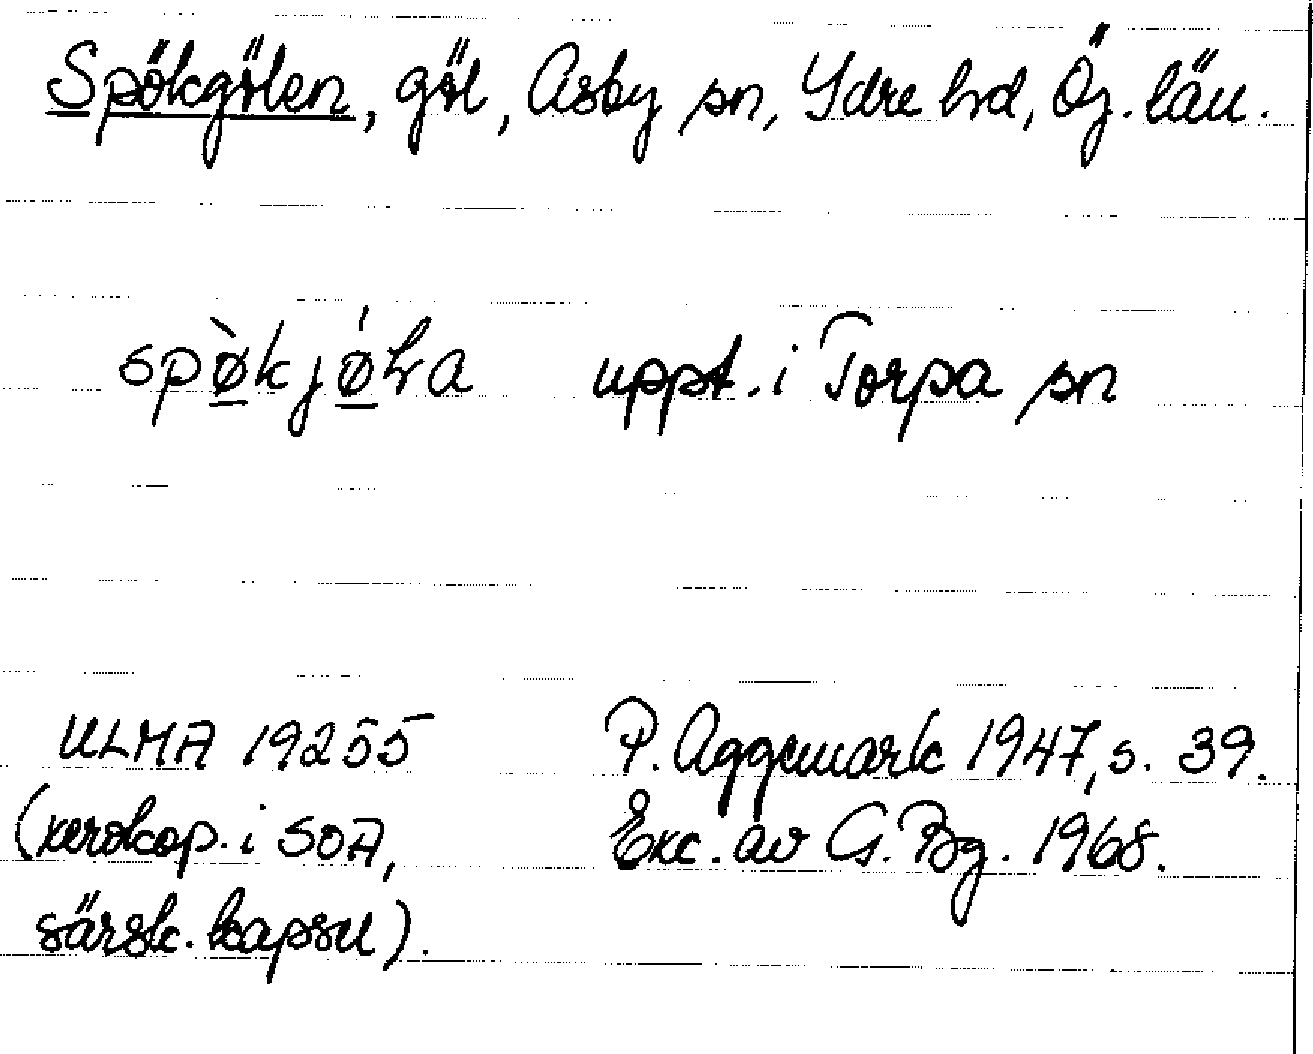 Spökgölen, göl, Asby sn, Ydre hrd, Ög. län.
spø̱̀kjǿ̱ła uppt. i Torpa sn
ULMA 19255 P. Aggemark 1947, s. 39.
(xerokop. i SOA, Exc. av G. Bg. 1968.
särsk. kapsel).